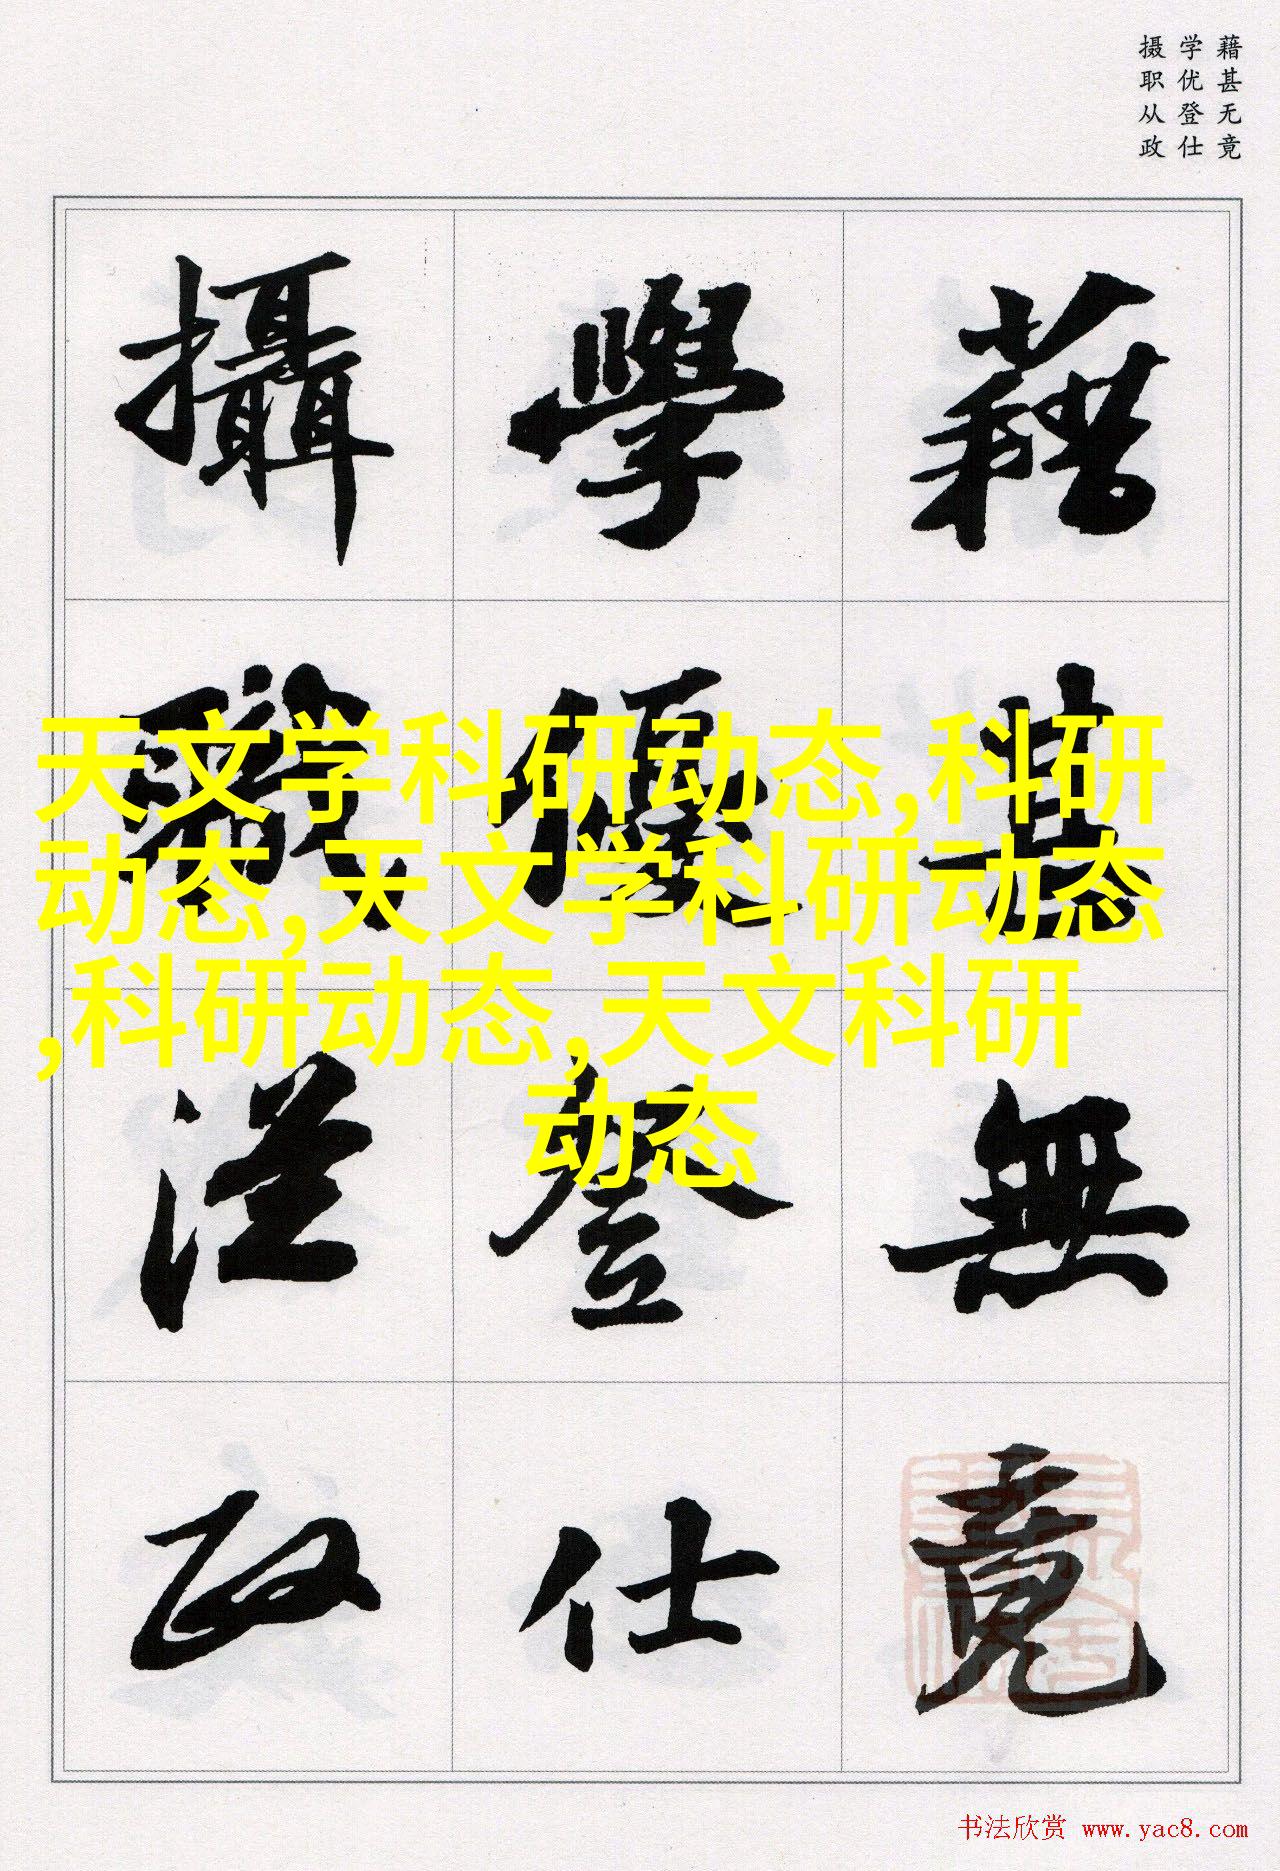 藉甚无竟
学优登仕
摄职从政
藉甚無竟
學優登仕
攝職從政
天文学科研动态,科研
动态,天文学科研动态
,科研动态,天文科研
动态
书法欣赏 www.yac8.com